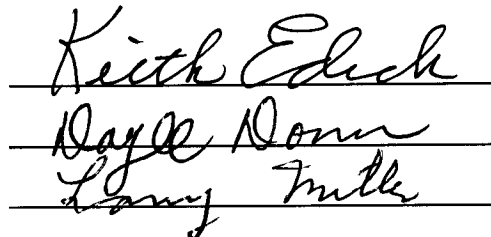 Keith Edick
Dayle Donn
Larry Miller